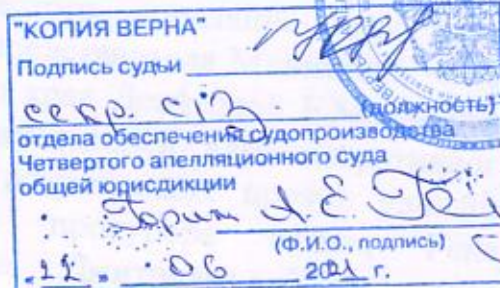 "КОПИЯ ВЕРНА"
Подпись судьи
секр. с/з.
(должность)
отдела обеспечения судопроизводства
Четвертого апелляционного суда
общей юрисдикции
А. Е.
(Ф.И.О., подпись)
"22" 06 2021 г.